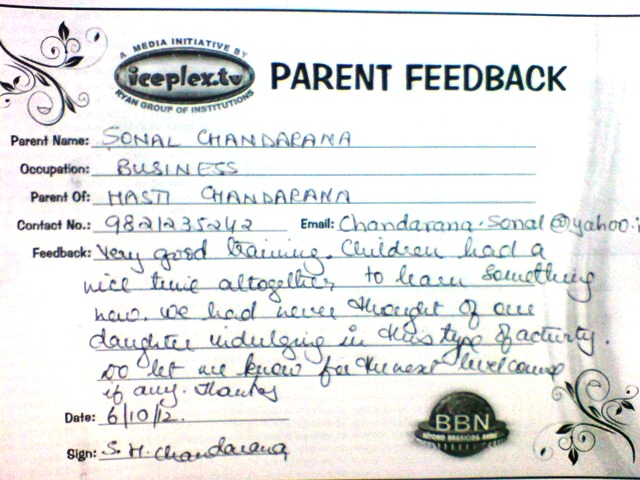 A MEDIA INITIATIVE BY
iceplex.tv
RYAN GROUP OF INSTITUTIONS
PARENT FEEDBACK
Parent Name: SONAL CHANDARANA
Occupation: BUSINESS
Parent Of: HASTI CHANDARANA
Contact No.: 9821235242 Email: Chandarana.sonal@yahoo.i
Feedback: Very good training. Children had a
nice time altogether, to learn something
new. We had never thought of our
daughter indulging in this type of activity.
Do let me know for the next level camp
if any. Thanks
Date: 6/10/12.
Sign: S. H. Chandarana
BBN
BEYOND BREAKING NEWS